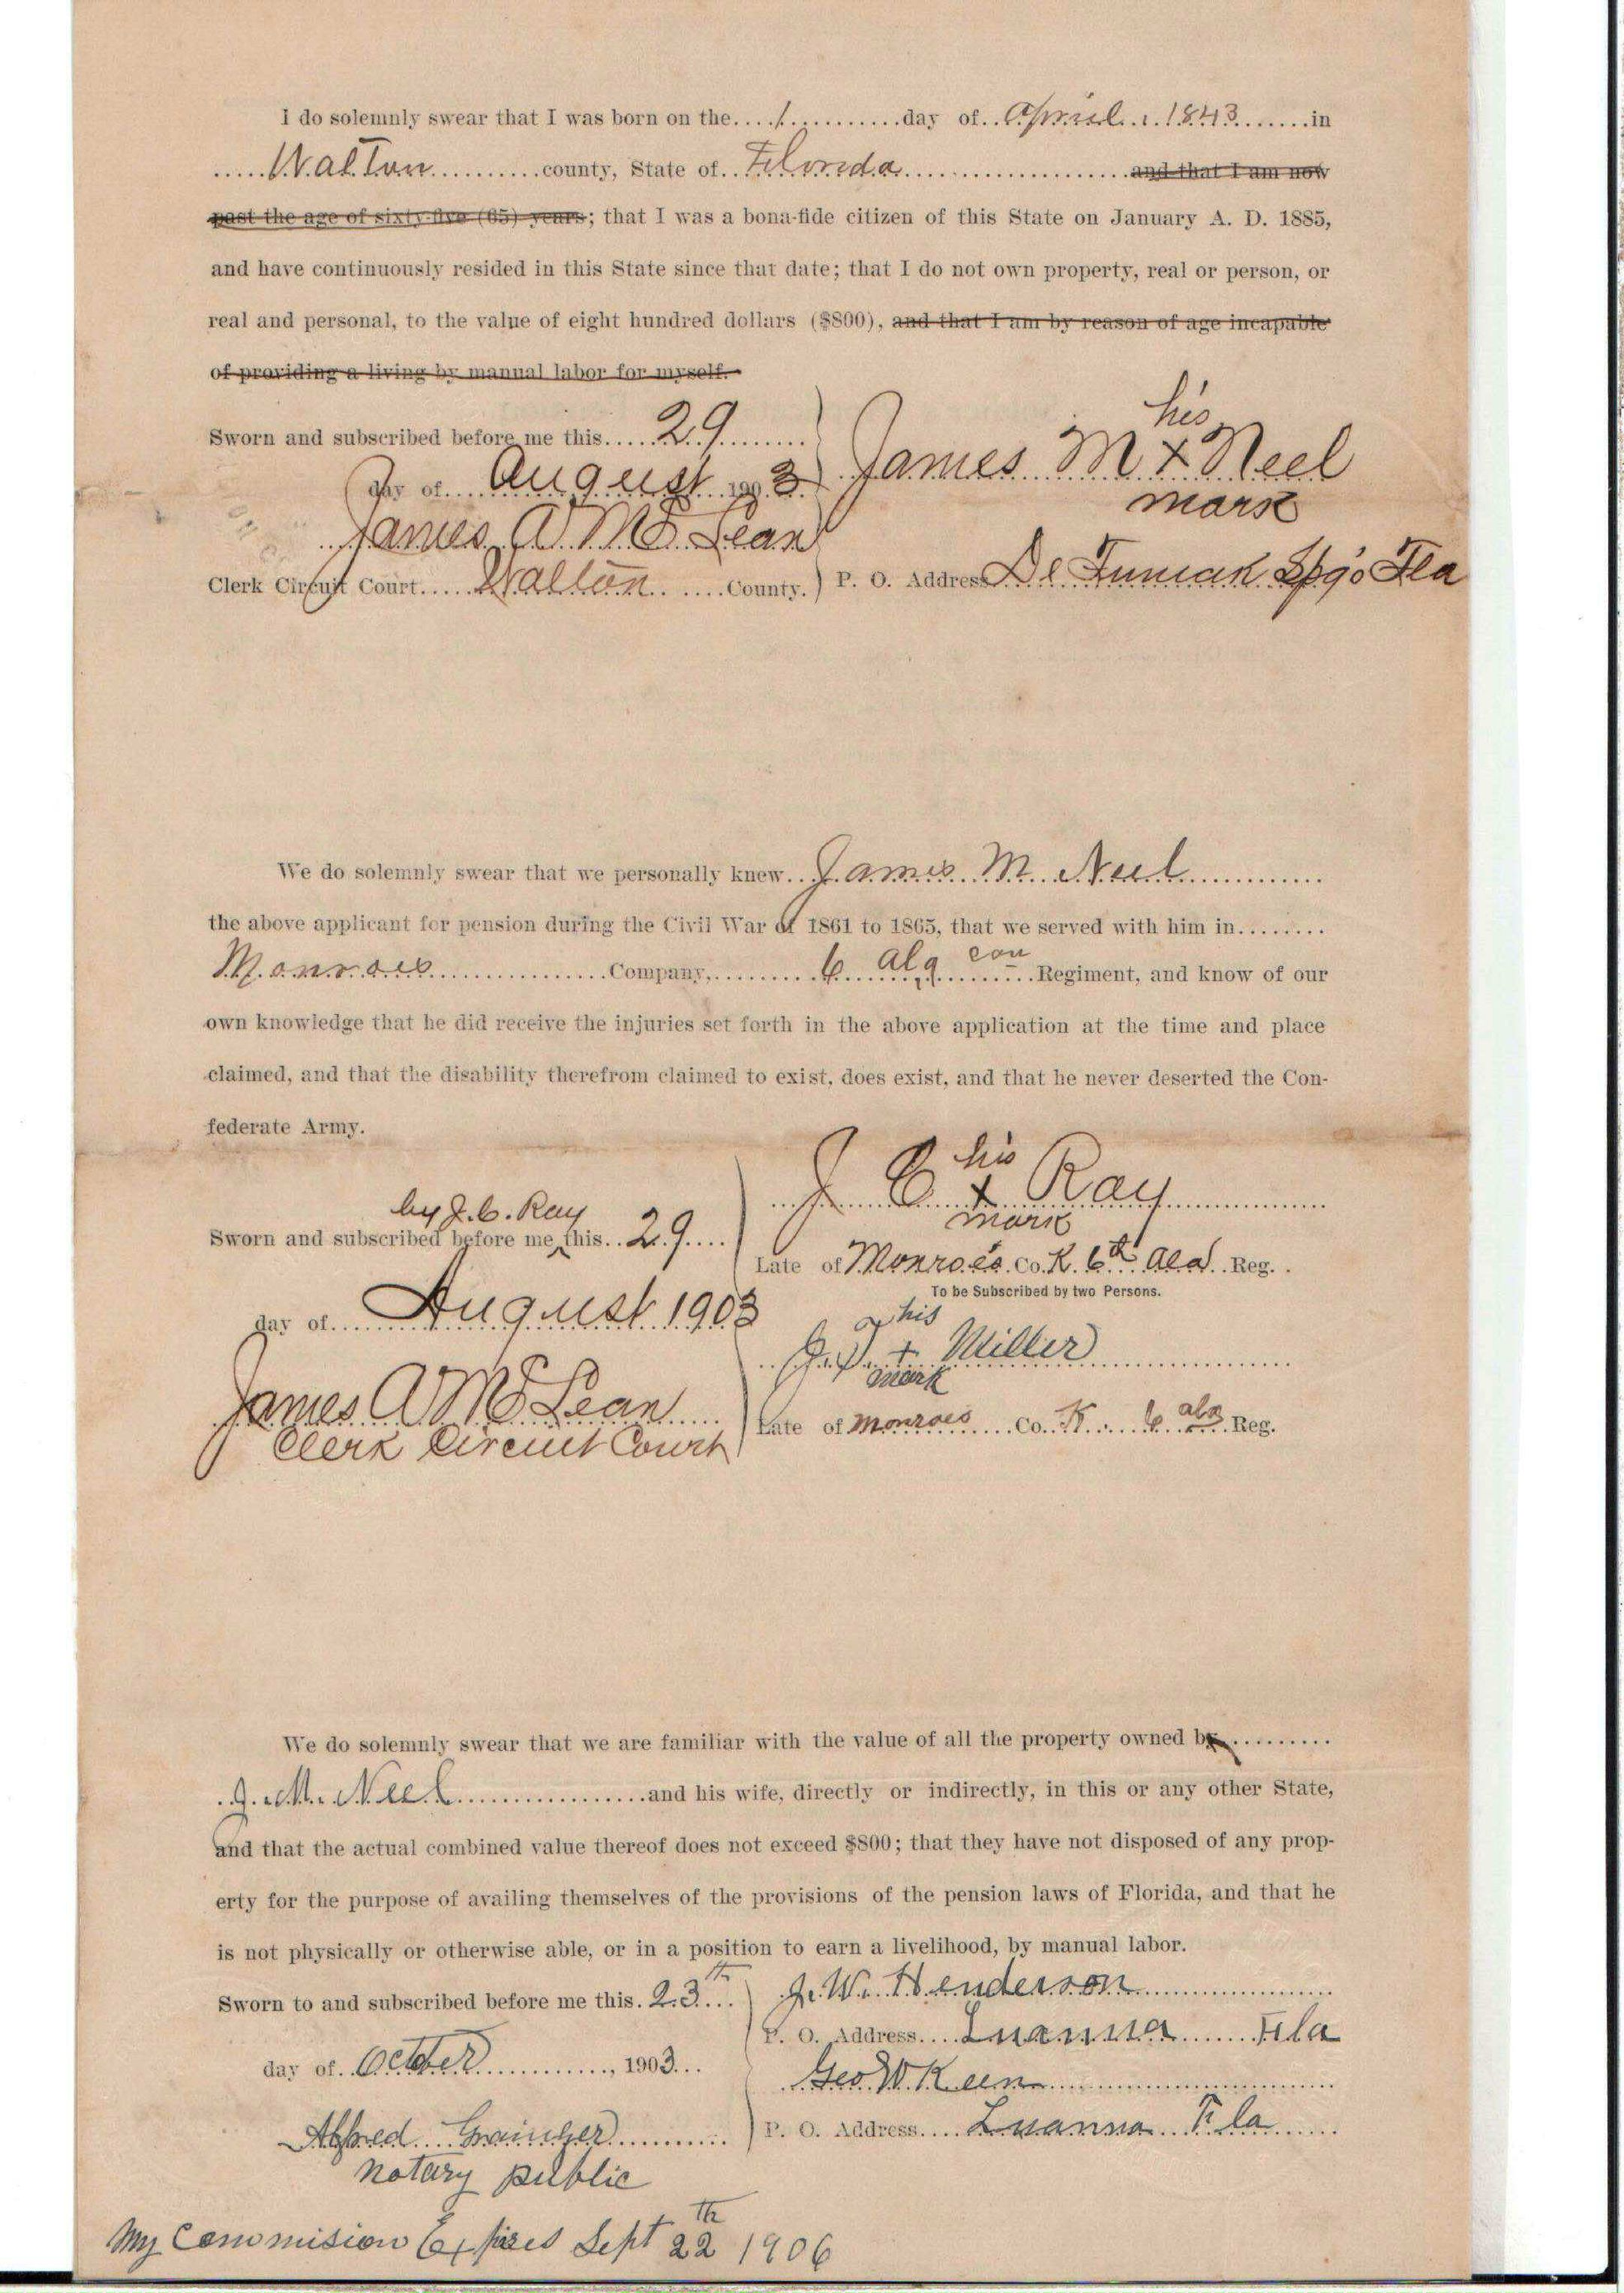 I do solemnly swear that I was born on the....1..........day of..April..1843.......in
.....Walton..........county, State of..Florida.....................and that I am now
past the age of sixty-five (65) years; that I was a bona-fide citizen of this State on January A. D. 1885,
and have continuously resided in this State since that date; that I do not own property, real or person, or
real and personal, to the value of eight hundred dollars ($800), and that I am by reason of age incapable
of providing a living by manual labor for myself.
Sworn and subscribed before me this.....29........
day of....August..1903.
James A McLean
Clerk Circuit Court.....Walton......County.
his
James M X Neel
mark
P. O. Address De Funiak Spgs Fla
We do solemnly swear that we personally knew..James M. Neel............
the above applicant for pension during the Civil War of 1861 to 1865, that we served with him in........
Monroes...............Company,........6 Ala con......Regiment, and know of our
own knowledge that he did receive the injuries set forth in the above application at the time and place
claimed, and that the disability therefrom claimed to exist, does exist, and that he never deserted the Con-
federate Army.
by J. C. Ray
Sworn and subscribed before me ^ this..29....
day of....August 1903
James A McLean
Clerk Circuit Court
his
J C X Ray
mark
Late of Monroes Co. K. 6th Ala. Reg..
To be Subscribed by two Persons.
his
+ Miller
mark
Late of Monroes.....Co..K...6 ala Reg.
We do solemnly swear that we are familiar with the value of all the property owned by.........
J. M. Neel..................and his wife, directly or indirectly, in this or any other State,
and that the actual combined value thereof does not exceed $800; that they have not disposed of any prop-
erty for the purpose of availing themselves of the provisions of the pension laws of Florida, and that he
is not physically or otherwise able, or in a position to earn a livelihood, by manual labor.
Sworn to and subscribed before me this.23th...
day of..October............, 1903...
Alfred Grainger
notary public
My Commision Expires Sept 22th 1906
J. W. Henderson
P. O. Address....Luanna.....Fla
Geo W. Keen
P. O. Address....Luanna..Fla......